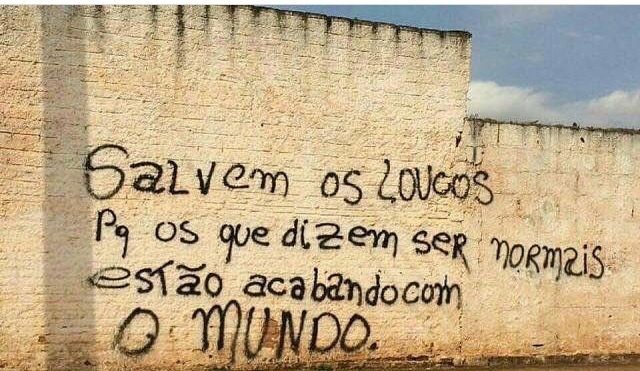 Salvem os loucos
Pq os que dizem ser normais
estão acabando com
o MUNDO.